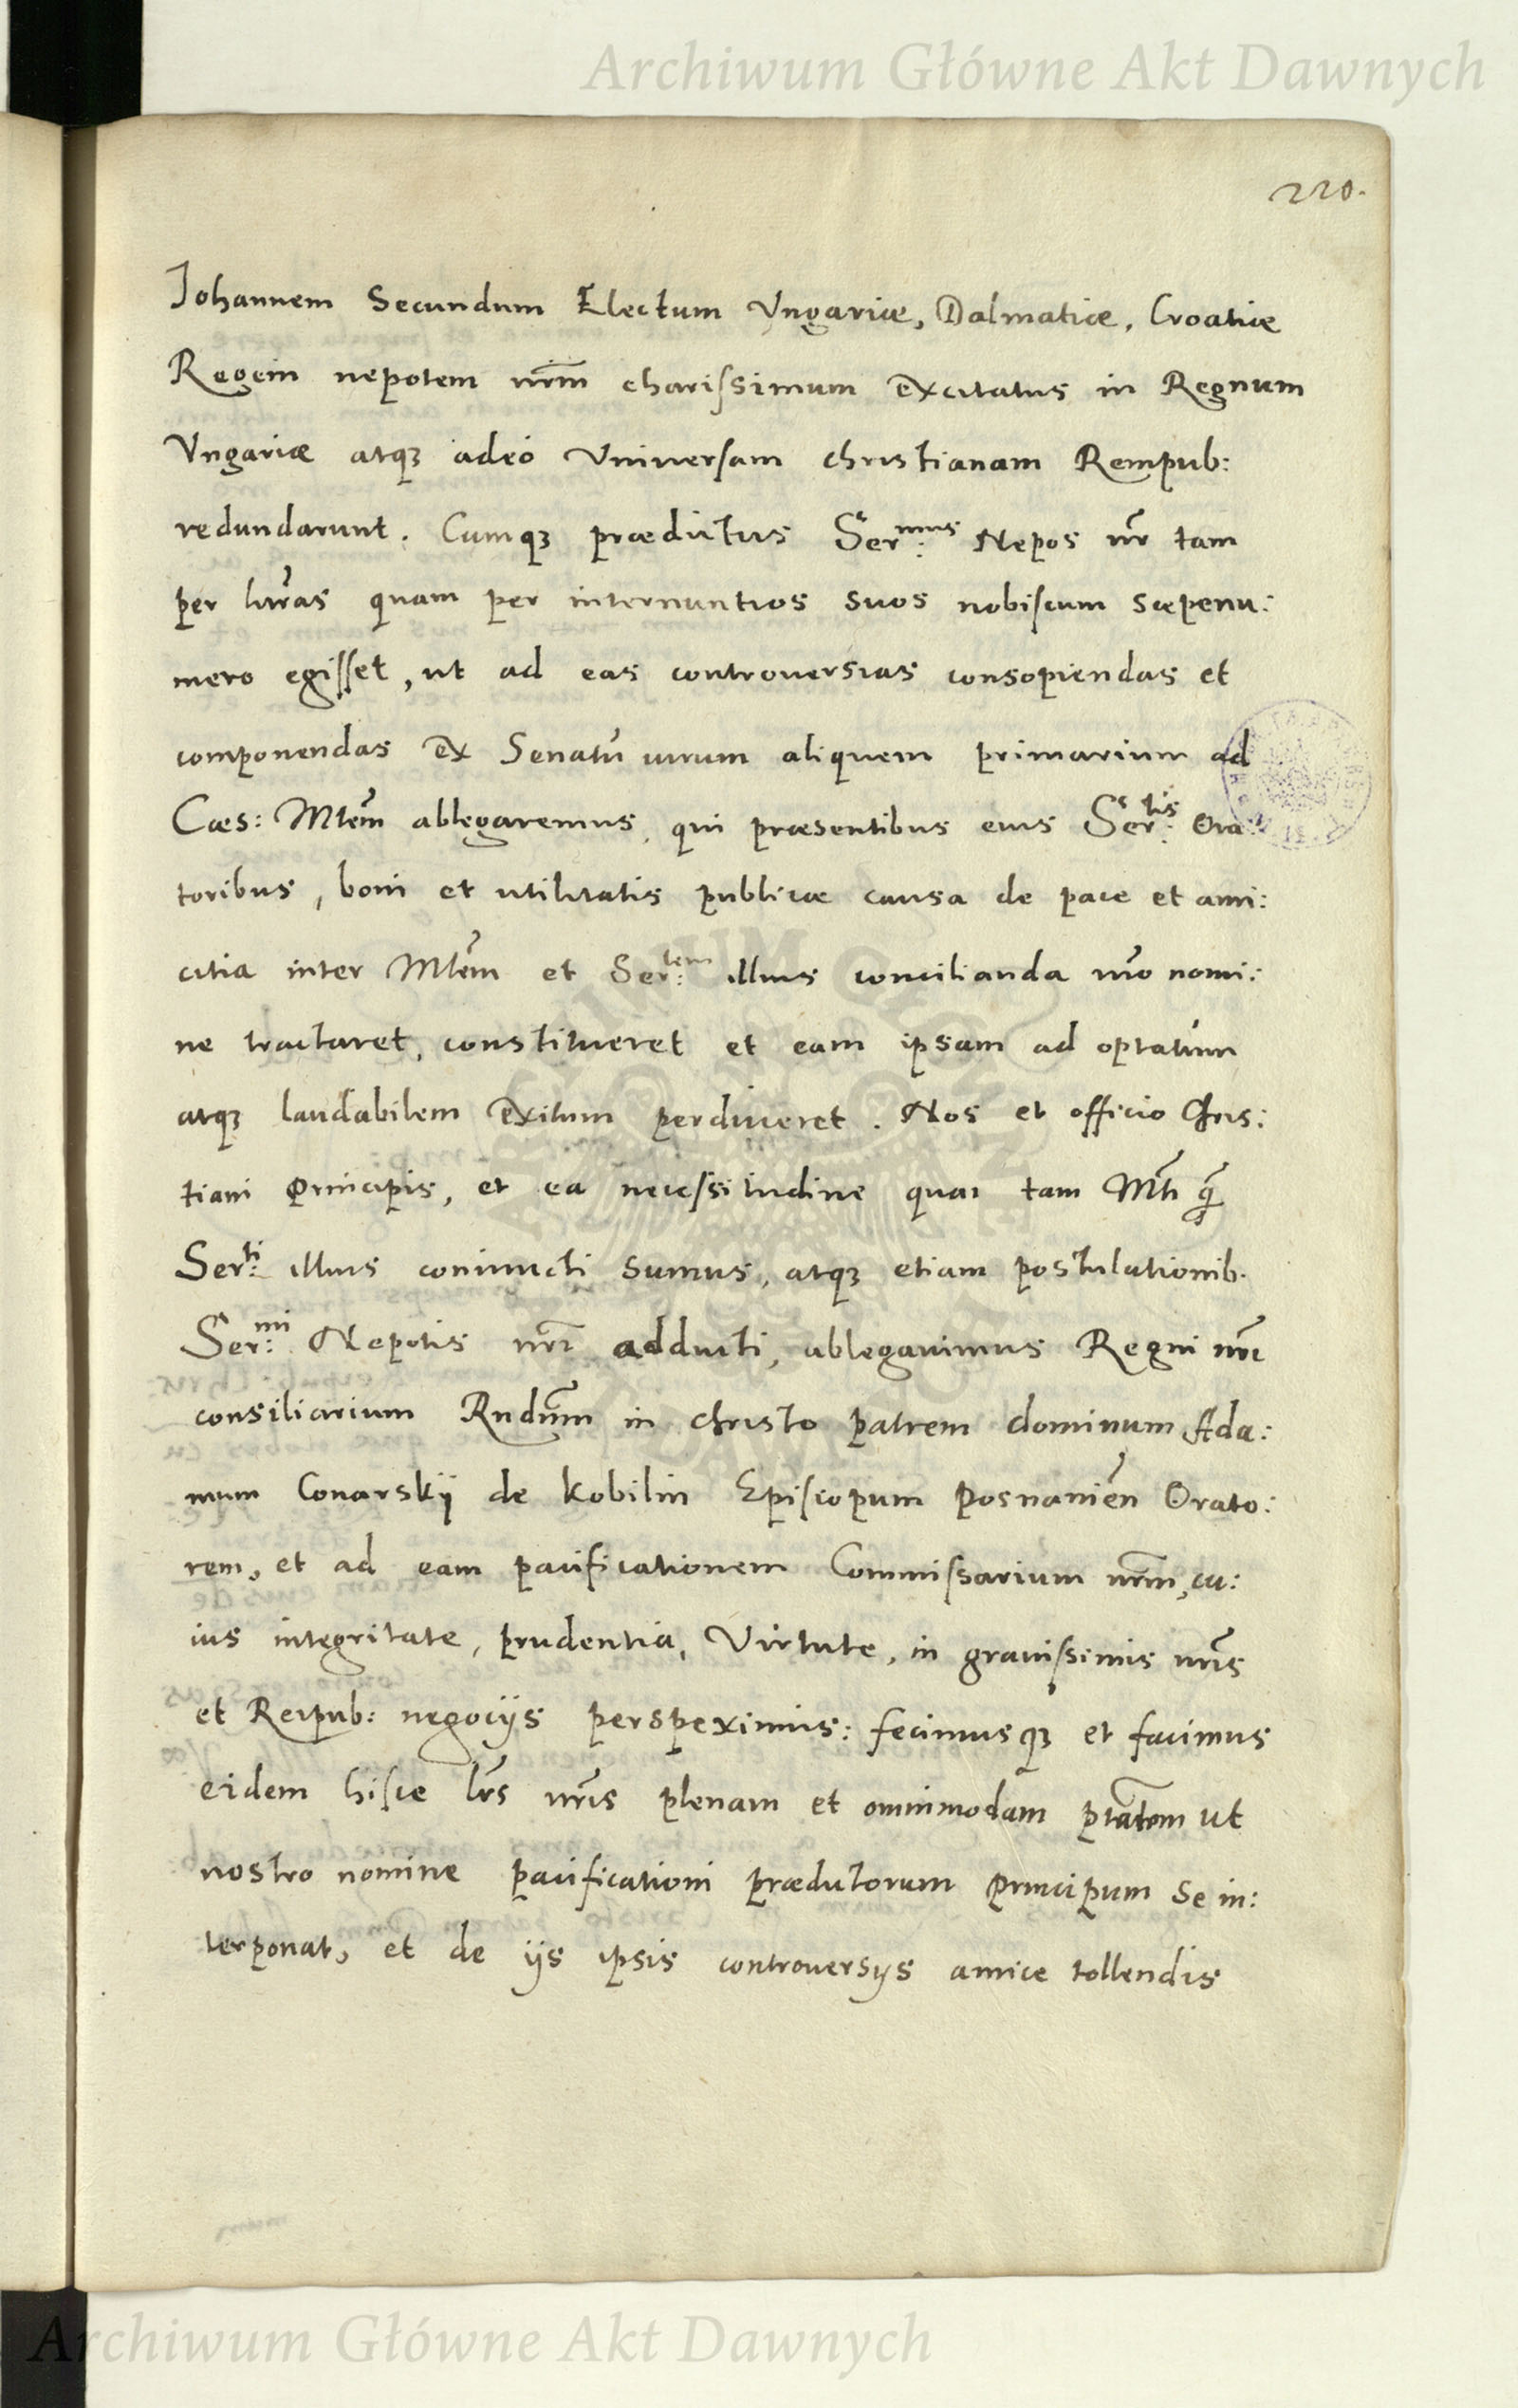 Archiwum Główne Akt Dawnych
220.
Iohannem Secundum Electum Vngariæ, Dalmatiæ, Croatiæ
Regem nepotem nr̃m charissimum excitatus in Regnum
Vngariæ atqꝫ adeo Vniuersam christianam Rempub:
redundarunt. Cumqꝫ prædictus Ser:mus Nepos nr̃ tam
per lit̃ras quam per internuntios suos nobiscum sæpenu:
mero egisset, ut ad eas controuersias consopiendas et
componendas ex Senatu uirum aliquem primarium ad
Cæs: Mtẽm ablegaremus, qui præsentibus eius Ser:tis Ora
toribus, boni et utilitatis publicæ causa de pace et ami:
citia inter Mtẽm et Ser:tem illius concilianda nr̃o nomi:
ne tractaret, constitueret et eam ipsam ad optatum
atqꝫ laudabilem exitum perduceret. Nos et officio Chris:
tiani Principis, et ea necessitudine quaı tam Mt̃i q̃
Ser:ti illius coniuncti sumus, atqꝫ etiam postulationib.
Ser:mi Nepotis nr̃i adducti, ablegauimus Regni nr̃i
consiliarium Rndũm in christo patrem dominum Ada:
mum Conarskÿ de Kobilin Episcopum posnaniẽn Orato:
rem, et ad eam pacificationem Commissarium nr̃m, cu:
ius integritate, prudentia, Virtute, in grauissimis nr̃is
et Reipub: negocÿs perspeximus: fecimusqꝫ et facimus
eidem hisce lr̃s nr̃is plenam et omnimodam ptãtem ut
nostro nomine pacificationi prædictorum principum se in:
terponat, et de ÿs ipsis controuersÿs amice tollendis
Archiwum Główne Akt Dawnych